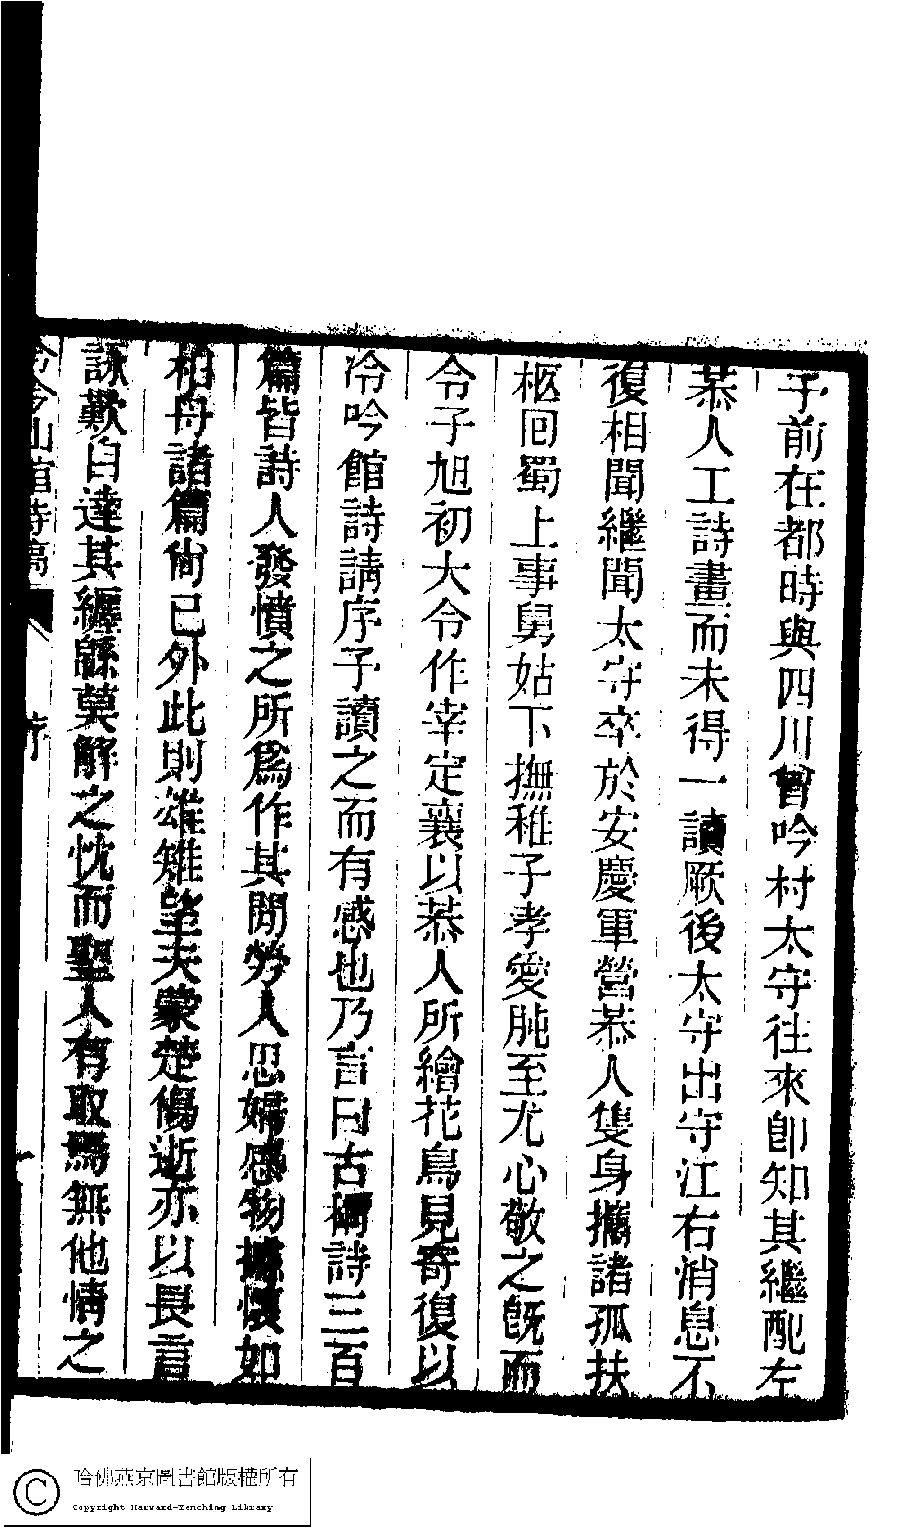 予前在都時與四川曾吟村太守往來卽知其繼配左
恭人工詩畫而未得一讀厥後太守出守江右消息不
復相聞繼聞太守卒於安慶軍營恭人隻身攜諸孤扶
柩回蜀上事舅姑下撫稚子孝愛肫至尤心敬之旣而
令子旭初大令作宰定襄以恭人所繪花鳥見寄復以
冷吟館詩請序予讀之而有感也乃言曰古稱詩三百
篇皆詩人發憤之所爲作其間勞人思婦感物攄懷如
柏舟諸篇尙已外此則雄雉望夫蒙楚傷逝亦以長言
詠歎自達其纏緜莫解之忱而聖人有取焉無他情之
冷吟仙館詩稿
序
一
哈佛燕京圖書館版權所有
Copyright Harvard-Yenching Library